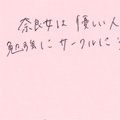 奈良女は 優しい人
勉強に サークルに